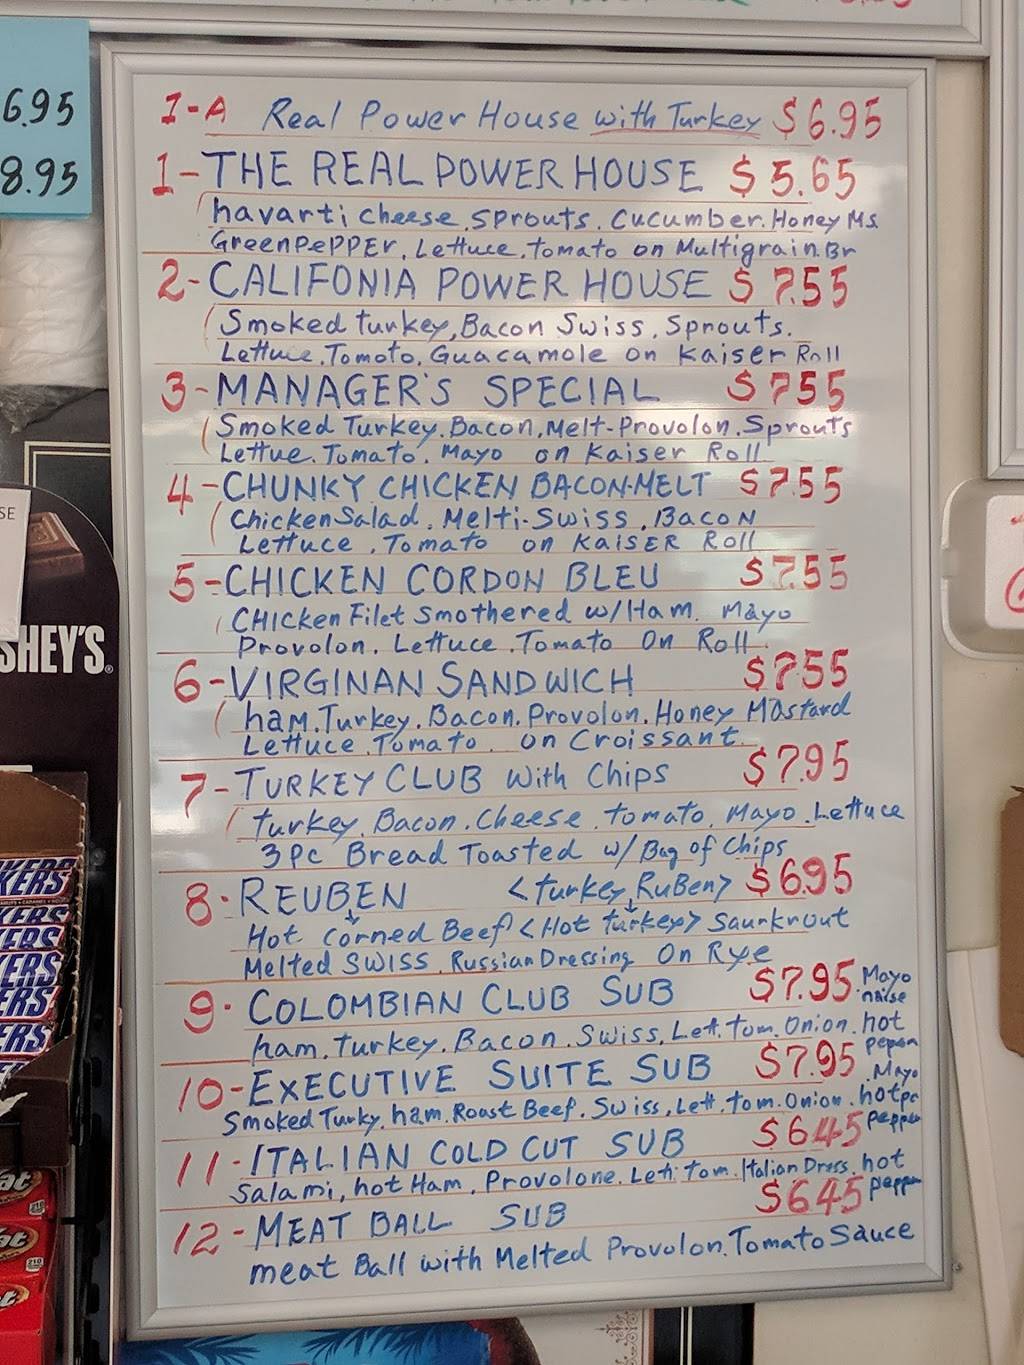 6.95
8.95
1-A Real Power House with Turkey $6.95
1- THE REAL POWER HOUSE $5.65
havarti cheese. Sprouts. Cucumber. Honey Ms
GreenPePPEr. Lettuce. tomato on Multigrain Br
2- CALIFONIA POWER HOUSE $7.55
Smoked turkey, Bacon Swiss. Sprouts.
Lettuce. Tomoto. Guacamole on Kaiser Roll
3- MANAGER'S SPECIAL $7.55
Smoked Turkey. Bacon. Melt-Provolon. Sprouts
Lettue. Tomato. Mayo on Kaiser Roll
4- CHUNKY CHICKEN BACON-MELT $7.55
Chicken Salad. Melti-Swiss. BacoN
Lettuce. Tomato on KAISER Roll
5- CHICKEN CORDON BLEU $7.55
CHicken Filet Smothered w/Ham. Mayo
Provolon. Lettuce. Tomato On Roll.
6- VIRGINAN SANDWICH $7.55
ham. Turkey. Bacon. Provolon. Honey Mustard
Lettuce. Tomato. on Croissant.
7- TURKEY CLUB With Chips $7.95
turkey. Bacon. Cheese. tomato. Mayo. Lettuce
3pc Bread Toasted w/ Bag of Chips
8. REUBEN <turkey RuBen> $6.95
Hot corned Beef <Hot turkey> Saurkrout
Melted SWISS. Russian Dressing On Rye
9. COLOMBIAN CLUB SUB $7.95 Mayo
naise
ham. turkey. Bacon. Swiss. Lett. tom. Onion. hot
10- EXECUTIVE SUITE SUB $7.95 Mayo
Smoked Turky. ham. Roast Beef. Swiss, Lett. tom. Onion.
11- ITALIAN COLD CUT SUB $6.45
Salami, hot Ham. Provolone. Lett. tom. Italian Dress. hot
12- MEAT BALL SUB $6.45
meat Ball with Melted Provolon. Tomato Sauce
SE
SHEY'S
KERS
KERS
KERS
ERS
ERS
at
at